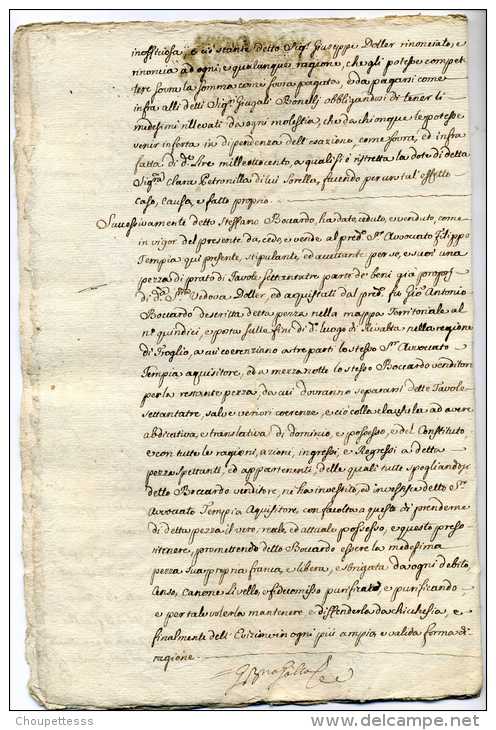 infruttuosa, e ciò stante detto Sigr Giuseppe Doller rinonciato, e
rinoncia ad ogni, e qualunque ragione, che gli potesse compet
tere sovra la somma come sovra pagata, e da pagarsi come
infra alli detti Sigri Giugali Bonelli obbligandosi di tenerli
medesimi rillevati da ogni molestia, che da chionque le potesse
venir inferta in dipendenza dell'esazione, come sovra, ed infra
fatta di de Lire milleottocento, a quali si è ristretta la dote di detta
Sigra Clara Petronilla di lui Sorella, facendo per un tal effetto
caso, causa, e fatto proprio.
Successivamente detto Steffano Boccardo, ha dato, ceduto, e venduto, come
in vigor del presente dà, cede, e vende al predo Sr Avvocato Filippo
Tempia qui presente, stipulante, ed accettante per se, e suoi una
pezza di prato di Tavole settantatre parte de' beni già proprj
di da Sigra Vedova Doller, ed acquistati dal predo fu Gio Antonio
Boccardo descritta detta pezza nella mappa Territoriale al
no quindici, e posta sulle fini di do luogo di Rivalta nella regione
di Troglio, a cui coerenziano a tre parti lo stesso Sr Avvocato
Tempia aquisitore, ed a mezza notte lo stesso Boccardo venditore
per la restante pezza, da cui dovranno separarsi dette Tavole
settantatre, salve veriori coerenze, e ciò colla clausola ad avere
abdicativa, e translativa di dominio, e possesso, e del Constituto,
e con tutte le ragioni, azioni, ingressi, e Regressi a detta
pezza spettanti, ed appartenenti, delle quali tutte spogliandosi
detto Boccardo venditore, ne ha investito, ed investisce detto Sr
Avvocato Tempia Aquisitore, con facoltà a questo di prenderne
di detta pezza il vero, reale, ed attuale possesso, e questo preso
ritenere, promettendo detto Boccardo essere la medesima
pezza sua propria franca, e libera, e sbrigata da ogni debito,
Censo, Canone Livello, e fidecomisso purificato, e purificando
e per tale volerla mantenere, e diffenderla da chicchesia, e
finalmente dell'Evizione in ogni più ampia, e valida forma di
ragione
© Choupettesss
www.delcampe.net